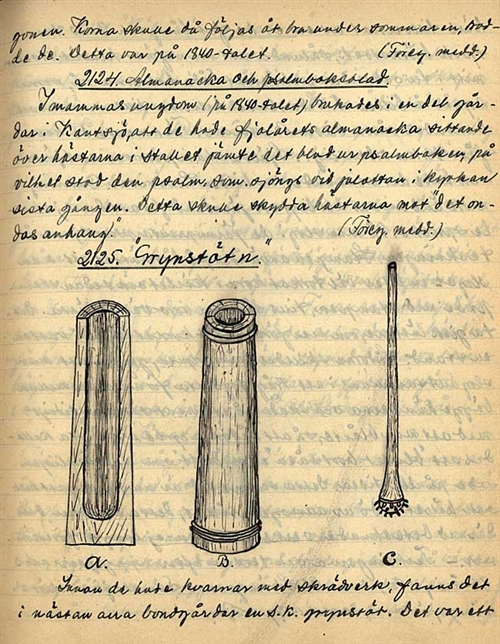 gonen. Korna skulle då följas åt bra under sommaren, trod-
de de. Detta var på 1840-talet. (Föreg. medd.)
2124. Almanacka och psalmboksblad.
I mammas ungdom (på 1840-talet) brukades i en del går-
dar i Kantsjö, att de hade fjolårets almanacka sittande
över hästarna i stallet jämte det blad ur psalmboken, på
vilket stod den psalm, som sjöngs vid julottan i kyrkan
sista gången. Detta skulle skydda hästarna mot "det on-
das anhang". (Föreg. medd.)
2125. "Grynstöt'n"
A. B. C.
Innan de hade kvarnar med skrädverk, fanns det
i nästan alla bondgårdar en s.k. grynstöt. Det var ett